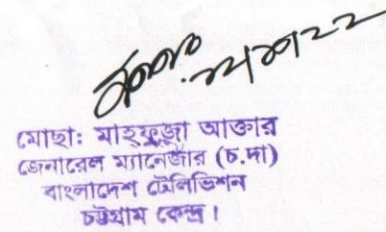 মোছা: মাহ্ফুজা আক্তার
জেনারেল ম্যানেজার (চ.দা)
বাংলাদেশ টেলিভিশন
চট্টগ্রাম কেন্দ্র।